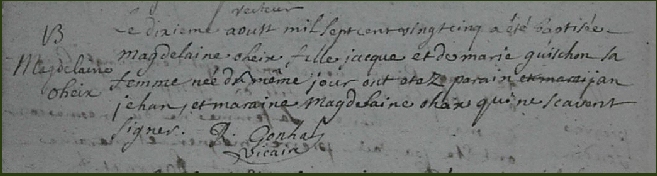 B
Magdelaine
oheix
Le dixieme aoust mil sept cent vingt cinq a été baptisée
Magdelaine oheix, fille jacque et de marie guischon sa
femme née du même jour ont etaz parain et marai jan
jehan, et maraine Magdelaine ohax qui ne scavent
signer.
Vicaire